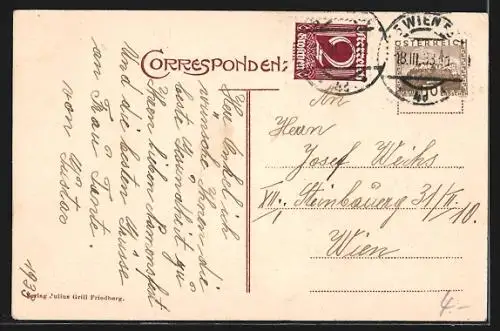 CORRESPONDENZ
Herr Onkel ich
wünsche Ihnen die
beste Gesundheit zu
Ihrem lieben Namensfest
Und die besten Grüsse
an Frau Tante.
von
1933
Verlag Julius Grill Friedberg.
2
Groschen
WIEN
18.III.33
ÖSTERREICH
An
Herrn
Josef Weihs
XII., Steinbauerg 31/II.
10.
Wien
4.-